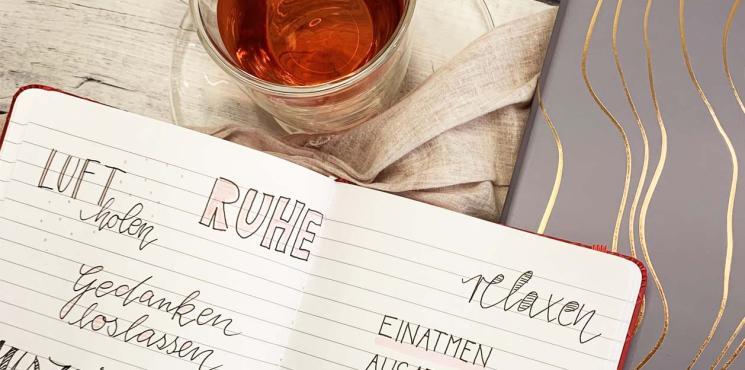 LUFT
holen
RUHE
Gedanken
loslassen
relaxen
EINATMEN